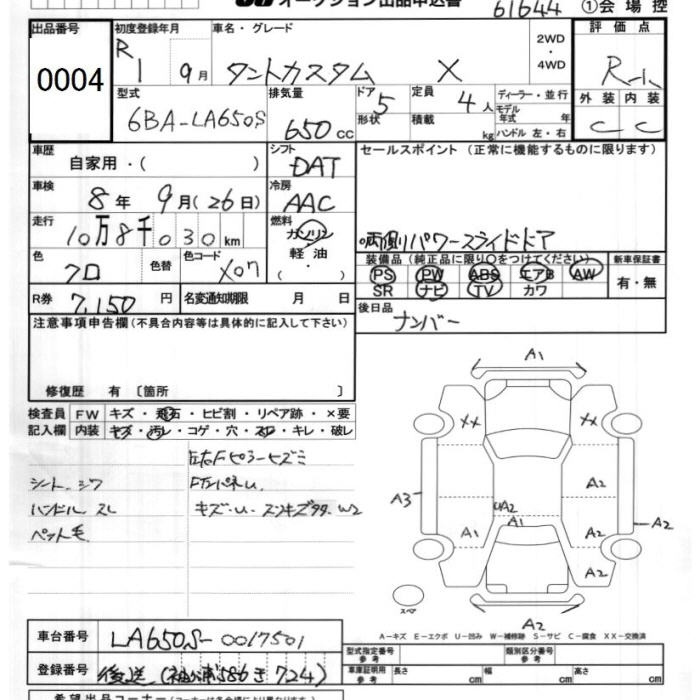 オークション出品申込書
61644 ①会場控
出品番号 初度登録年月 車名・グレード 2WD・4WD 評価点
0004 R1 9月 タントカスタム X R-1
型式 排気量 ドア 定員 ディーラー・並行 外装 内装
6BA-LA650S 650cc 5 4人 モデル年式 年 C C
形状 積載 kg ハンドル 左・右
車歴 シフト セールスポイント (正常に機能するものに限ります)
自家用・( ) DAT
車検 冷房
8年 9月(26日) AAC
走行 燃料
10万8千030km ガソリン 両側パワースライドドア
軽油
色 色替 色コード 装備品(純正品に限り○をつけてください) 新車保証書
クロ X07 PS PW ABS エアB AW 有・無
SR ナビ TV カワ
R券 7,150円 名変通知期限 月 日 後日品
注意事項申告欄(不具合内容等は具体的に記入して下さい) ナンバー
修復歴 有 〔箇所 〕
検査員 FW キズ・飛石・ヒビ割・リペア跡・×要
記入欄 内装 キズ・汚レ・コゲ・穴・スレ・キレ・破レ
左右Fピラーヒズミ
シート シワ
ハンドル スレ キズ・U
ペット毛
A1
XX XX
A2
A3 UA2 A2
A1 A1 A2
A2
スペア A2
A-キズ E-エクボ U-凹み W-補修跡 S-サビ C-腐食 XX-交換済
車台番号 LA650S-0017501
型式指定番号 参考 類別区分番号 参考
登録番号 後送(袖ヶ浦586き724)
車庫証明用 参考 長さ cm 幅 cm 高さ cm
希望出品コーナー